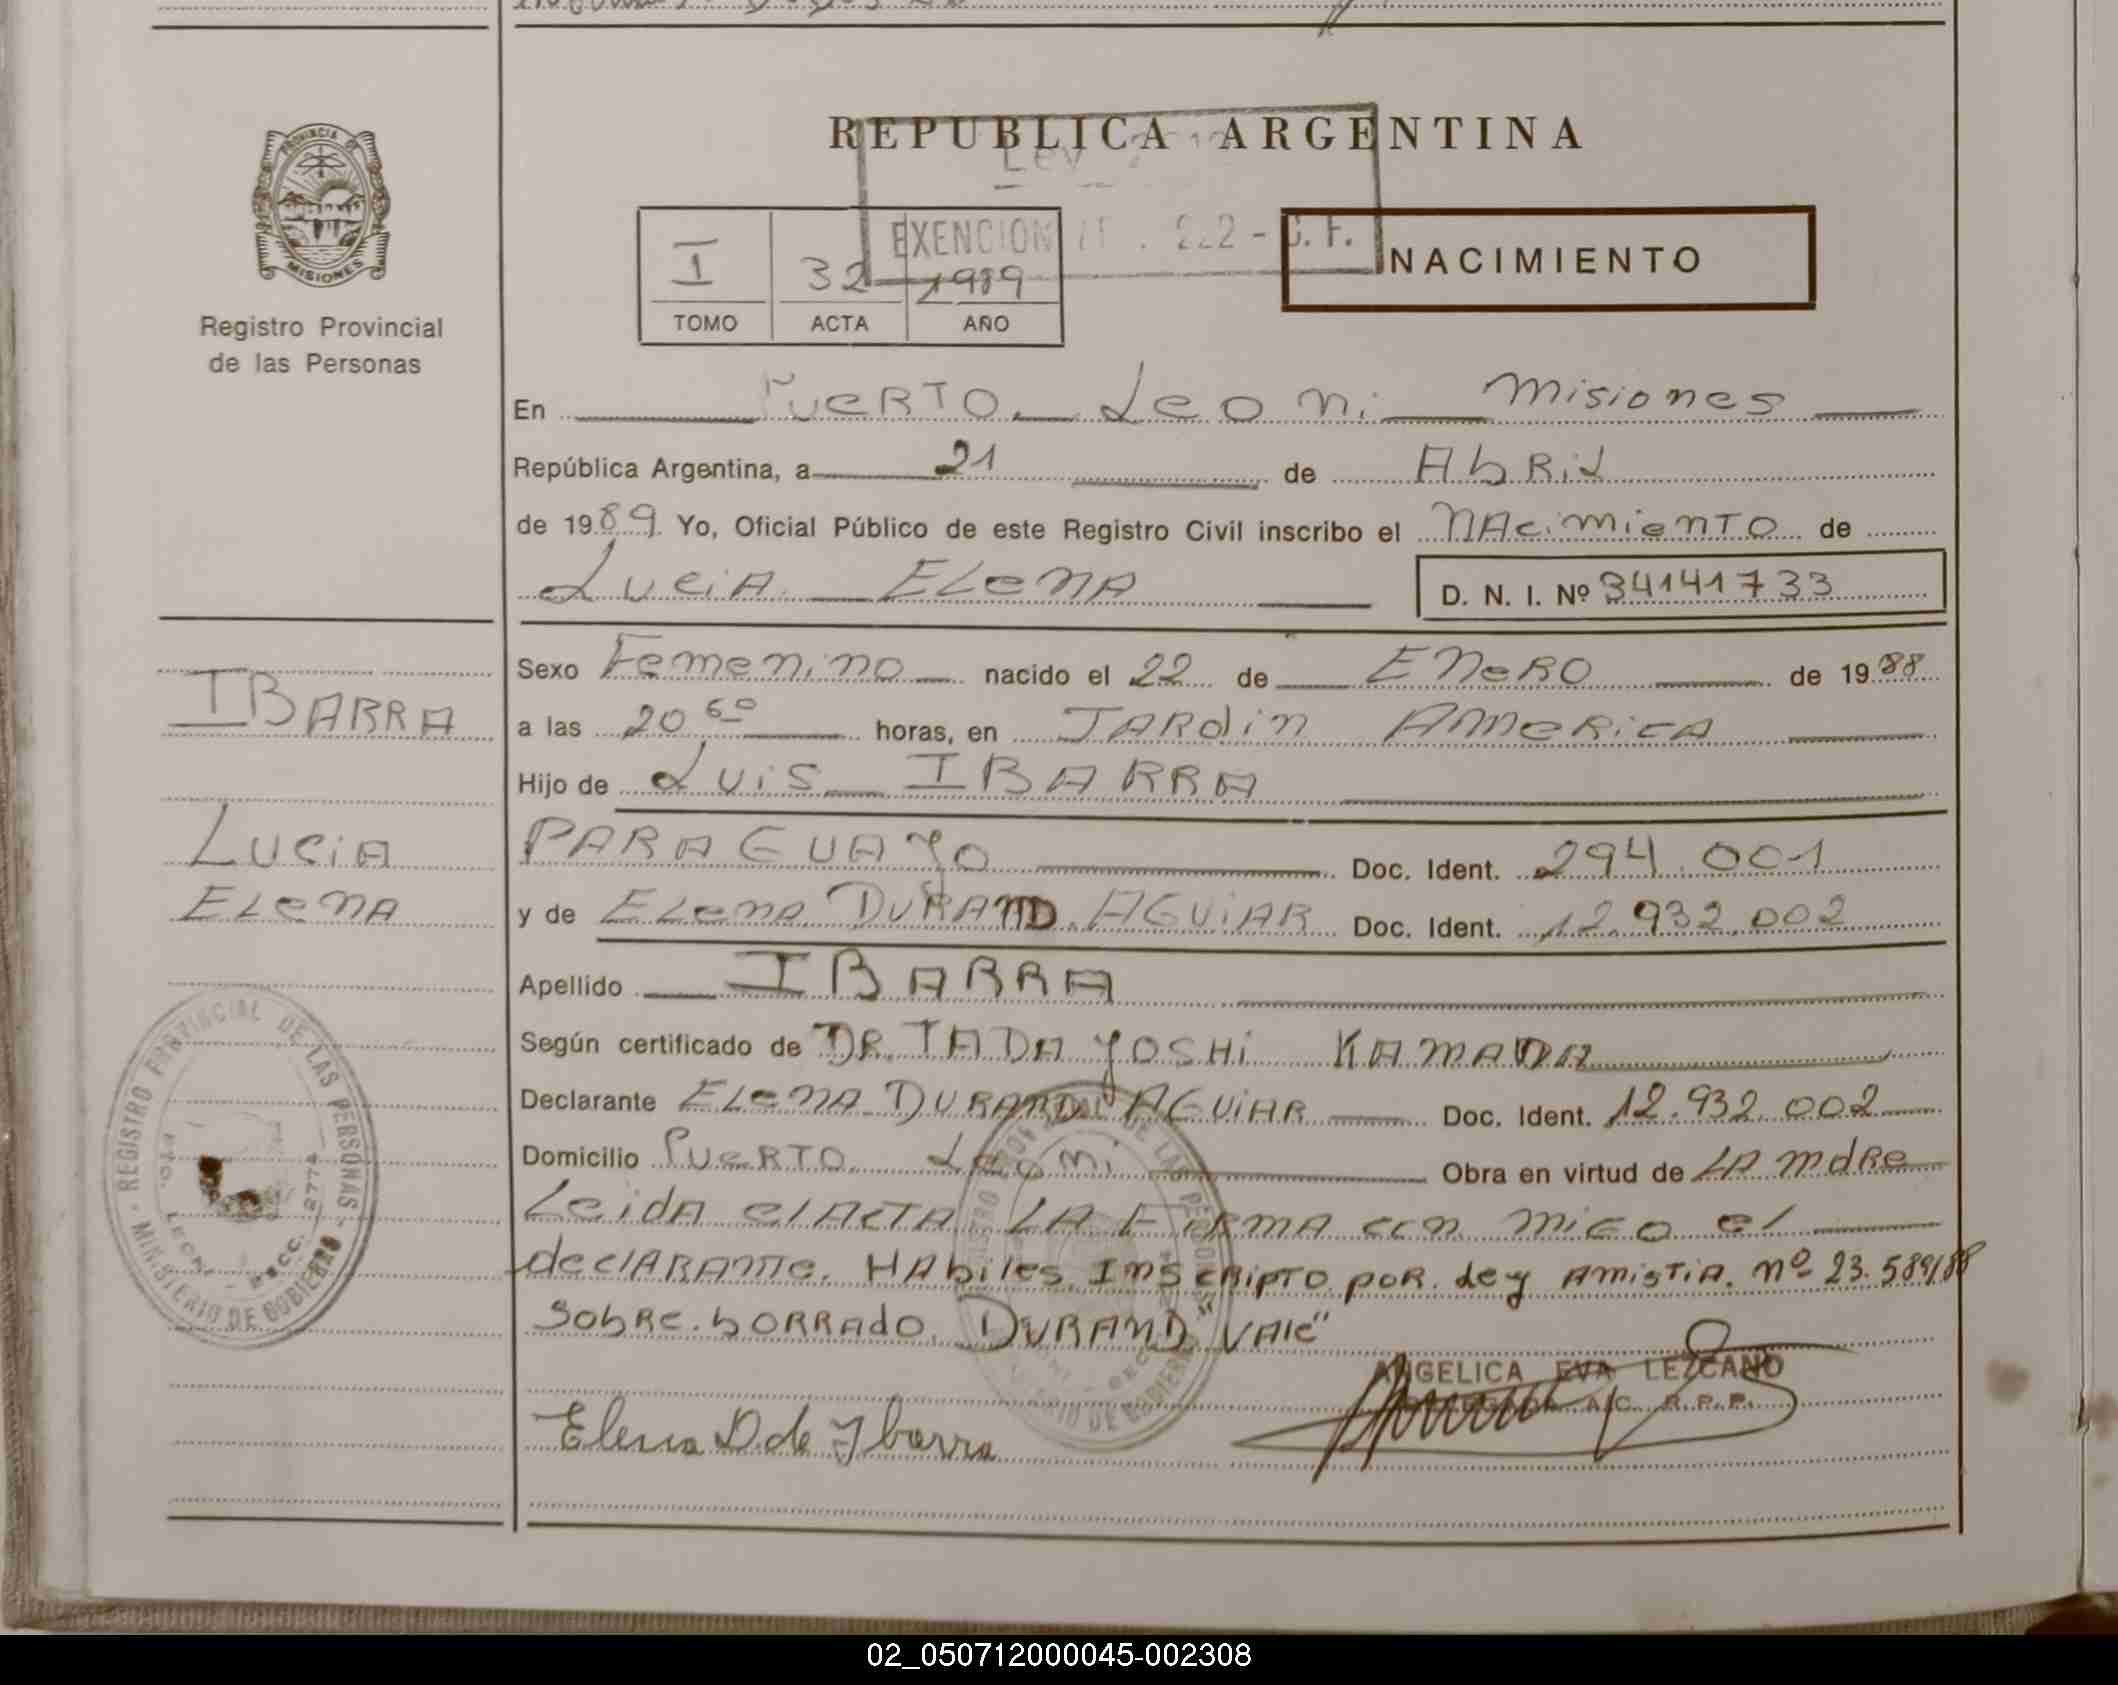 REPUBLICA ARGENTINA
Ley
EXENCION
NACIMIENTO
I 32 1989
TOMO ACTA AÑO
PROVINCIA DE MISIONES
Registro Provincial
de las Personas
En Puerto Leoni Misiones
República Argentina, a 21 de Abril
de 1989 Yo, Oficial Público de este Registro Civil inscribo el NAcimiento de
Lucia Elena
D. N. I. Nº 34141733
Sexo Femenino nacido el 22 de ENERO de 1988
a las 20 horas, en JARdin AMERICA
Hijo de Luis IBARRA
PARAGUAYO Doc. Ident. 294.001
y de ELENA DURAND AGUIAR Doc. Ident. 12.932.002
Apellido IBARRA
Según certificado de DR. TADA YOSHI KAMADA
Declarante ELENA DURAND AGUIAR Doc. Ident. 12.932.002
Domicilio PUERTO Leoni Obra en virtud de LA mdRe
LeidA el ActA LA FiRMA con migo el
declARAnte. HAbiles Inscripto poR. Ley Amistia. nº 23.589/88
Sobre.borrado. DURAND "VAle"
ANGELICA EVA LEZCANO
A/C. R.P.P.
Elena D. de Ybarra
IBARRA
LUCIA
ELENA
REGISTRO PROVINCIAL DE LAS PERSONAS - MINISTERIO DE GOBIERNO
PTO. LEONI - SECC. 2774
02_050712000045-002308